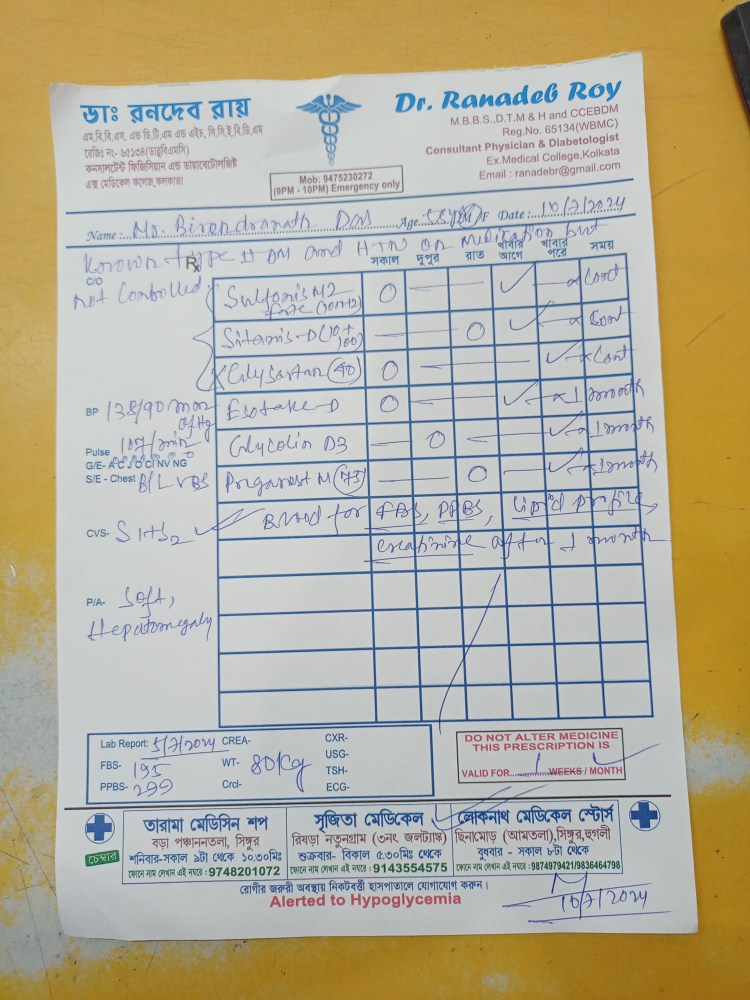 ডাঃ রনদেব রায়
এম.বি.বি.এস, এন্ড ডি.টি.এম এন্ড এইচ, সি.সি.ই.বি.ডি.এম
রেজিঃ নং- ৬৫১৩৪(ডাব্লুবিএমসি)
কনসালটেন্ট ফিজিসিয়ান এন্ড ডায়াবেটোলজিষ্ট
এক্স মেডিকেল কলেজ,কলকাতা
Mob: 9475230272
(9PM - 10PM) Emergency only
Dr. Ranadeb Roy
M.B.B.S.,D.T.M & H and CCEBDM
Reg.No. 65134(WBMC)
Consultant Physician & Diabetologist
Ex.Medical College,Kolkata
Email : ranadebr@gmail.com
Name : Mr. Birendranath Das Age 58 yrs M/F Date : 10/7/2024
Known type II DM and HTN on Medication but
Rx
C/O
not Controlled
সকাল দুপুর রাত খাবার আগে খাবার পরে সময়
Cont
Sitanis-D (10+100) Cont
Glysartan (40) Cont
BP 138/90 mm of Hg
Esotake-D 1 month
Pulse 107/min
Glycolin D3 1 month
G/E- A C J O Cl NV NG
S/E - Chest B/L VBS
M (75) 1 month
CVS- S1+S2
Blood for FBS, PPBS, Lipid profile,
creatinine after 1 month
P/A- Soft,
Hepatomegaly
Lab Report: 5/7/2024 CREA- CXR-
FBS- 195 WT- 80 kg USG-
TSH-
PPBS- 299 Crcl- ECG-
DO NOT ALTER MEDICINE
THIS PRESCRIPTION IS
VALID FOR......1......WEEKS / MONTH
চেম্বার
তারামা মেডিসিন শপ
বড়া পঞ্চাননতলা, সিঙ্গুর
শনিবার-সকাল ৯টা থেকে ১০.৩০মিঃ
ফোনে নাম লেখান এই নম্বরে : 9748201072
সৃজিতা মেডিকেল
রিষড়া নতুনগ্রাম (৩নং জলট্যাঙ্ক)
শুক্রবার- বিকাল ৫.৩০মিঃ থেকে
ফোনে নাম লেখান এই নম্বরে : 9143554575
লোকনাথ মেডিকেল স্টোর্স
ছিনামোড় (আমতলা),সিঙ্গুর,হুগলী
বুধবার - সকাল ৮টা থেকে
ফোনে নাম লেখান এই নম্বরে : 9874979421/9836464798
রোগীর জরুরী অবস্থায় নিকটবর্তী হাসপাতালে যোগাযোগ করুন।
Alerted to Hypoglycemia
10/7/2024